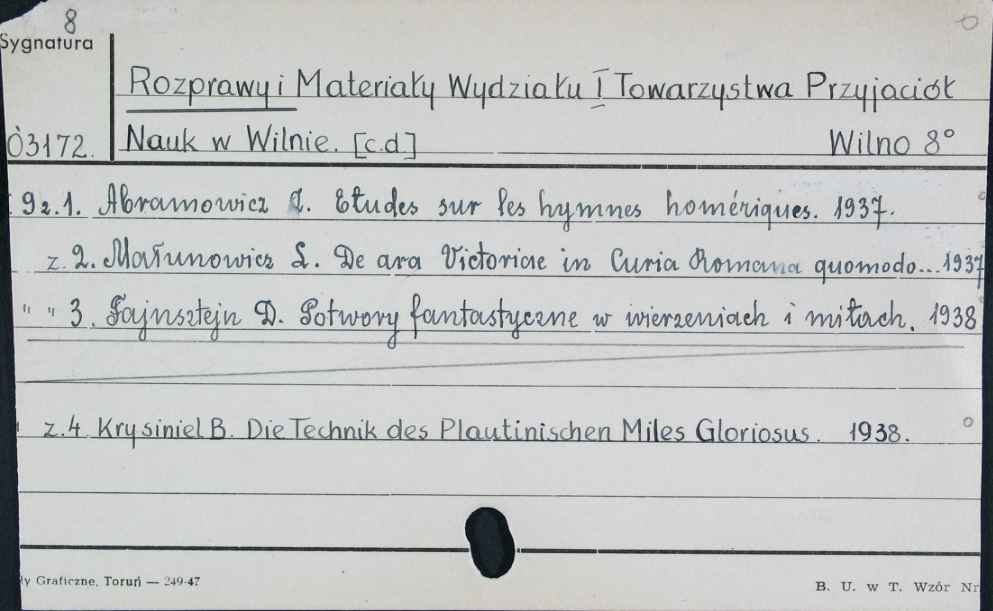 8
Sygnatura
Rozprawy i Materiały Wydziału I Towarzystwa Przyjaciół
03172. Nauk w Wilnie. [c.d.] Wilno 8°
9z.1. Abramowicz Z. Etudes sur les hymnes homériques. 1937.
z.2. Małunowicz L. De ara Victoriae in Curia Romana quomodo... 1937
" " 3. Fajnsztejn D. Potwory fantastyczne w wierzeniach i mitach. 1938
z.4 Krysiniel B. Die Technik des Plautinischen Miles Gloriosus. 1938.
Graficzne, Toruń — 249-47
B. U. w T. Wzór Nr